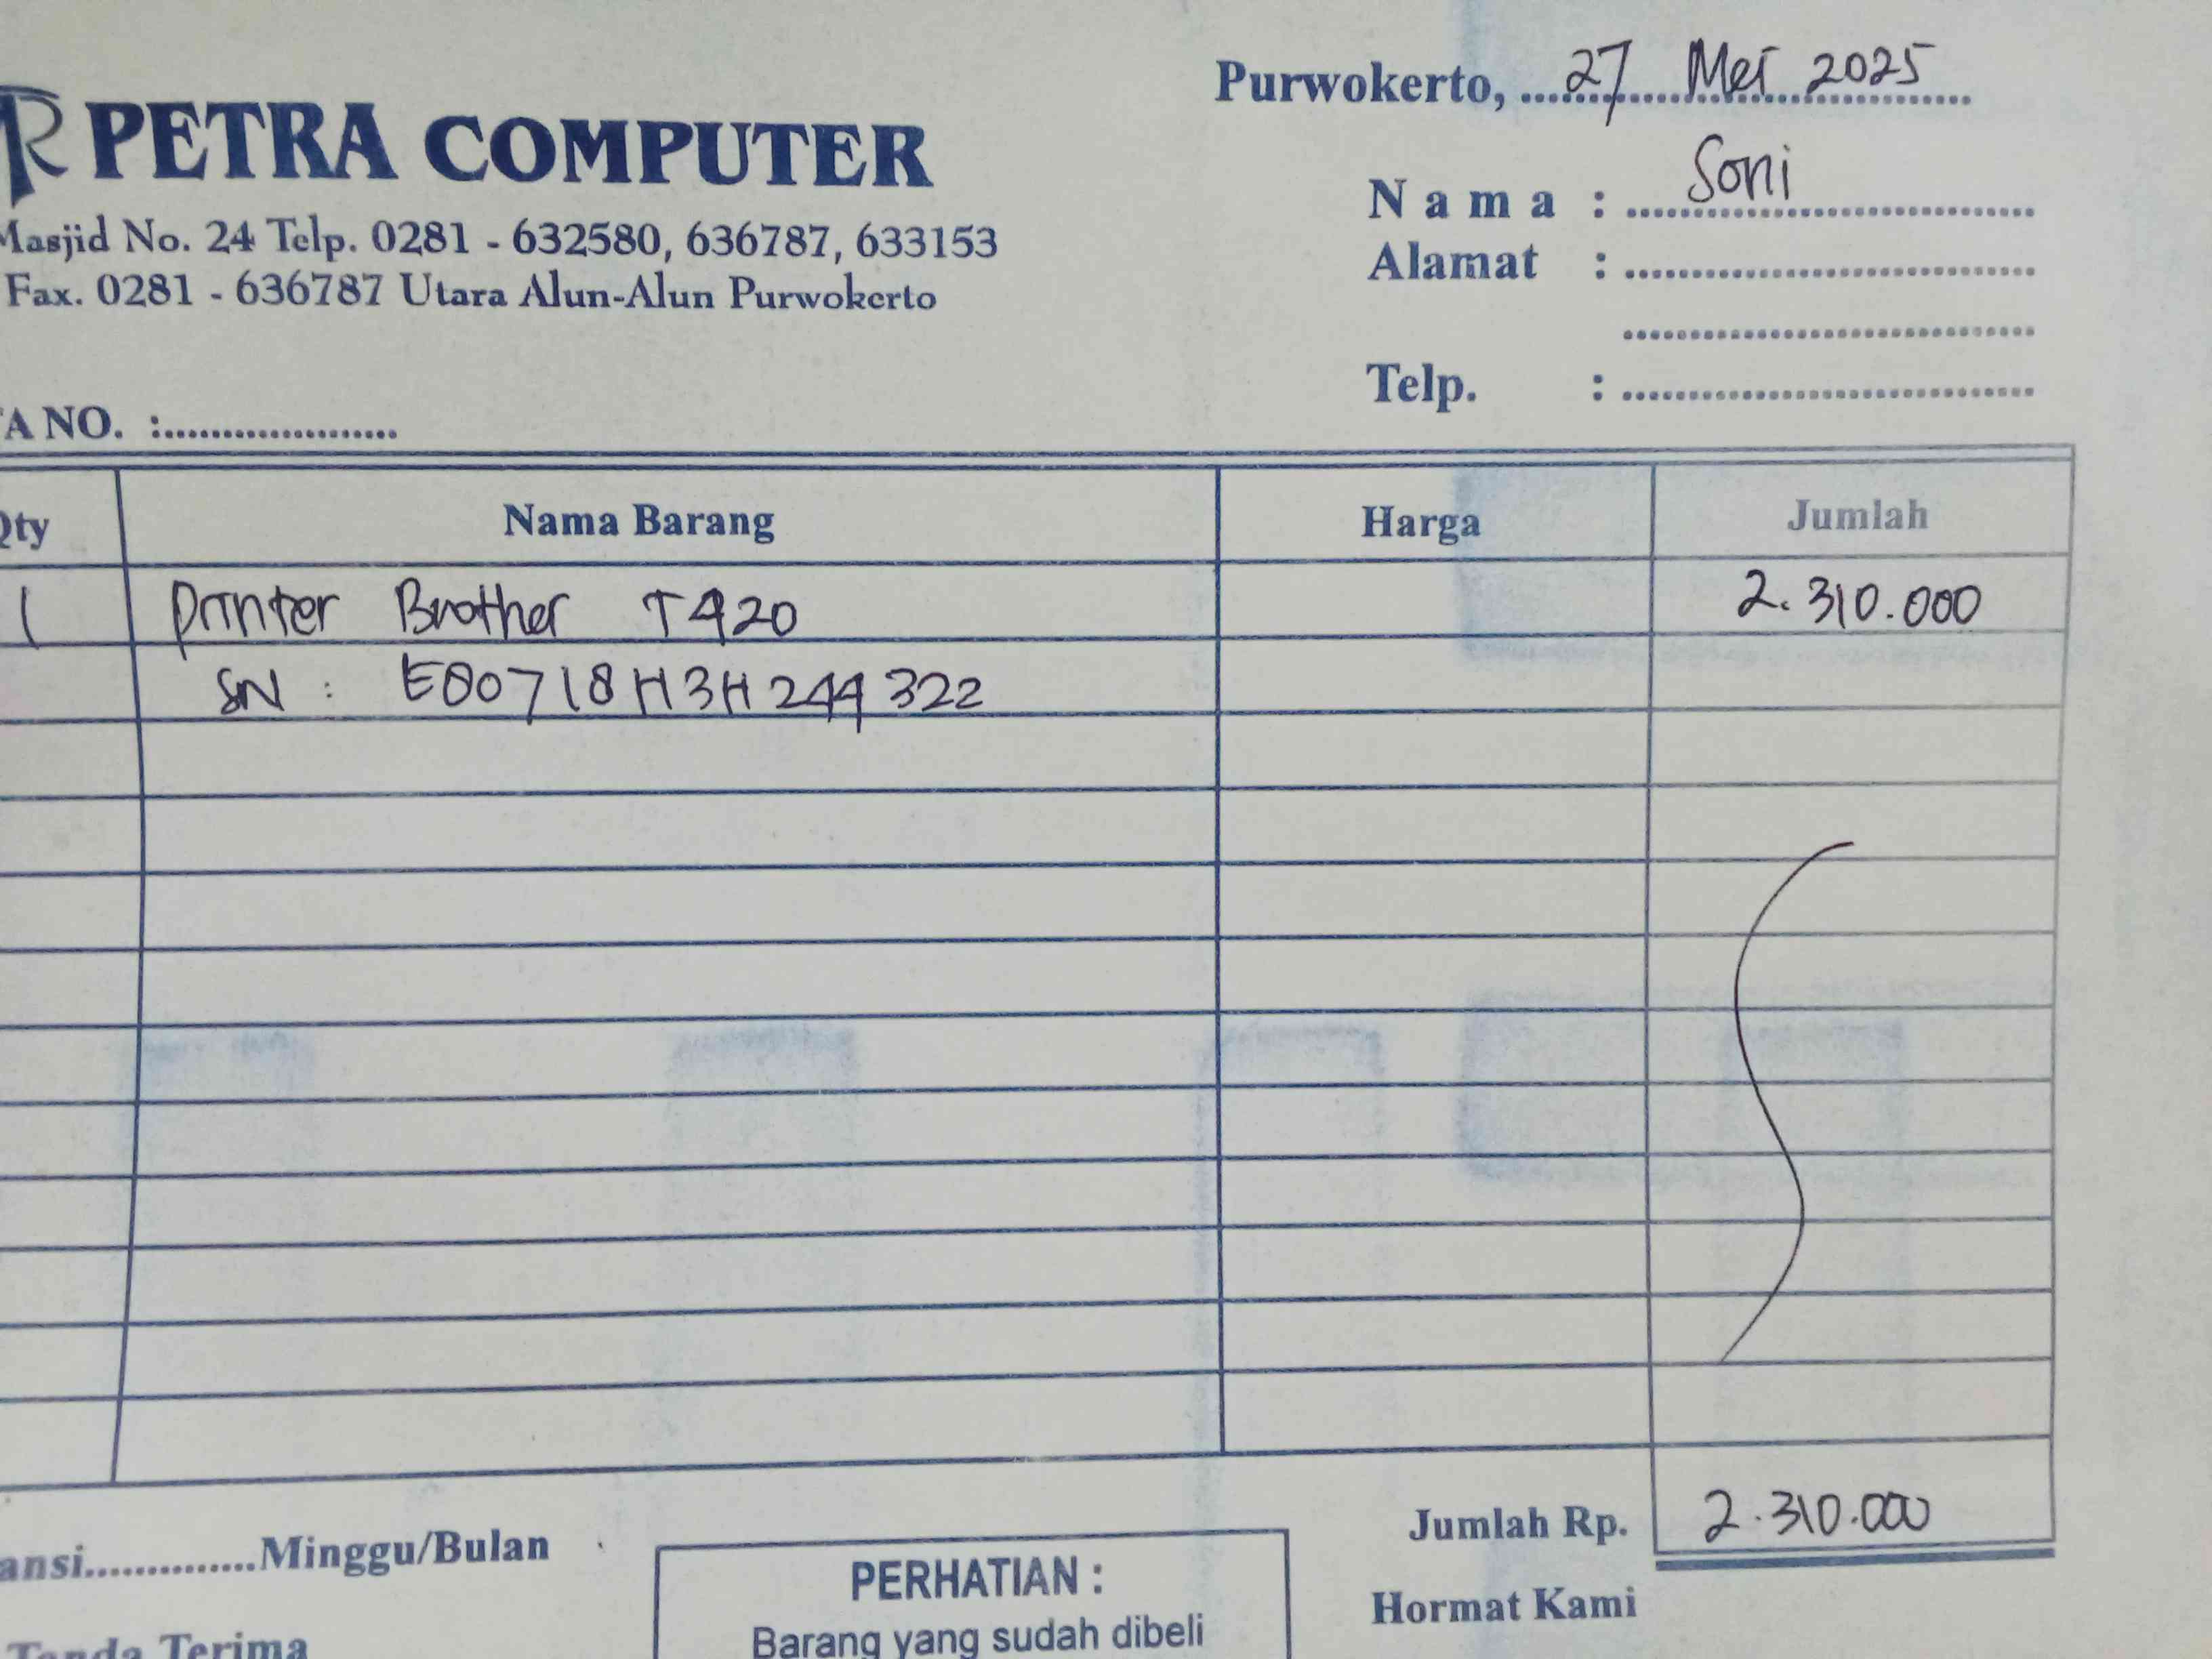 PETRA COMPUTER
Masjid No. 24 Telp. 0281 - 632580, 636787, 633153
Fax. 0281 - 636787 Utara Alun-Alun Purwokerto
Purwokerto, 27 Mei 2025
Nama : Soni
Alamat :
Telp. :
TA NO. :
Qty Nama Barang Harga Jumlah
1 Printer Brother T420 2.310.000
SN : E80718H3H244322
Jumlah Rp. 2.310.000
ansi..............Minggu/Bulan
PERHATIAN :
Barang yang sudah dibeli
Hormat Kami
Tanda Terima